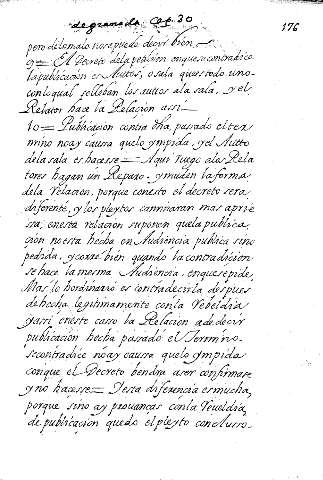 de granada Cap. 30
176
pero delomalo nosepuedo decir bien,
9 = El Decreto dela peticion enquese contradice
la publicacion es Autos, o sala quees todo uno
con lo qual selleban los autos ala sala, y el
Relator hace la Relaçion assi =
10 = Publicacion contra tha, passado el ter
mino no ay causa quelo ympida, y el Autto
dela sala es hacesse = Aqui ruego alos Rela
tores hagan un Reparo, y muden la forma
dela Relacion, porque conesto el decreto sera
diferente, y los pleytos caminaran mas aprie
ssa, enesta relacion suponen quela publica
cion noesta hecha en Audiencia publica sino
pedida, y corre bien quando la contradicion
se hace la mesma Audiencia, enquesepide,
Mas lo hordinario es contradecirla despues
de hecha legitimamente con la Rebeldia
y assi eneste casso la Relacion a de decir
publicacion hecha passado el Termino
secontradice no ay causa quelo ympida
conque el Decreto bendra aser confirmase
y no hacesse = Y esta diferencia es mucha,
porque sino ay prouanças con la Reueldia,
de publicacion quedo el pleyto conclusso